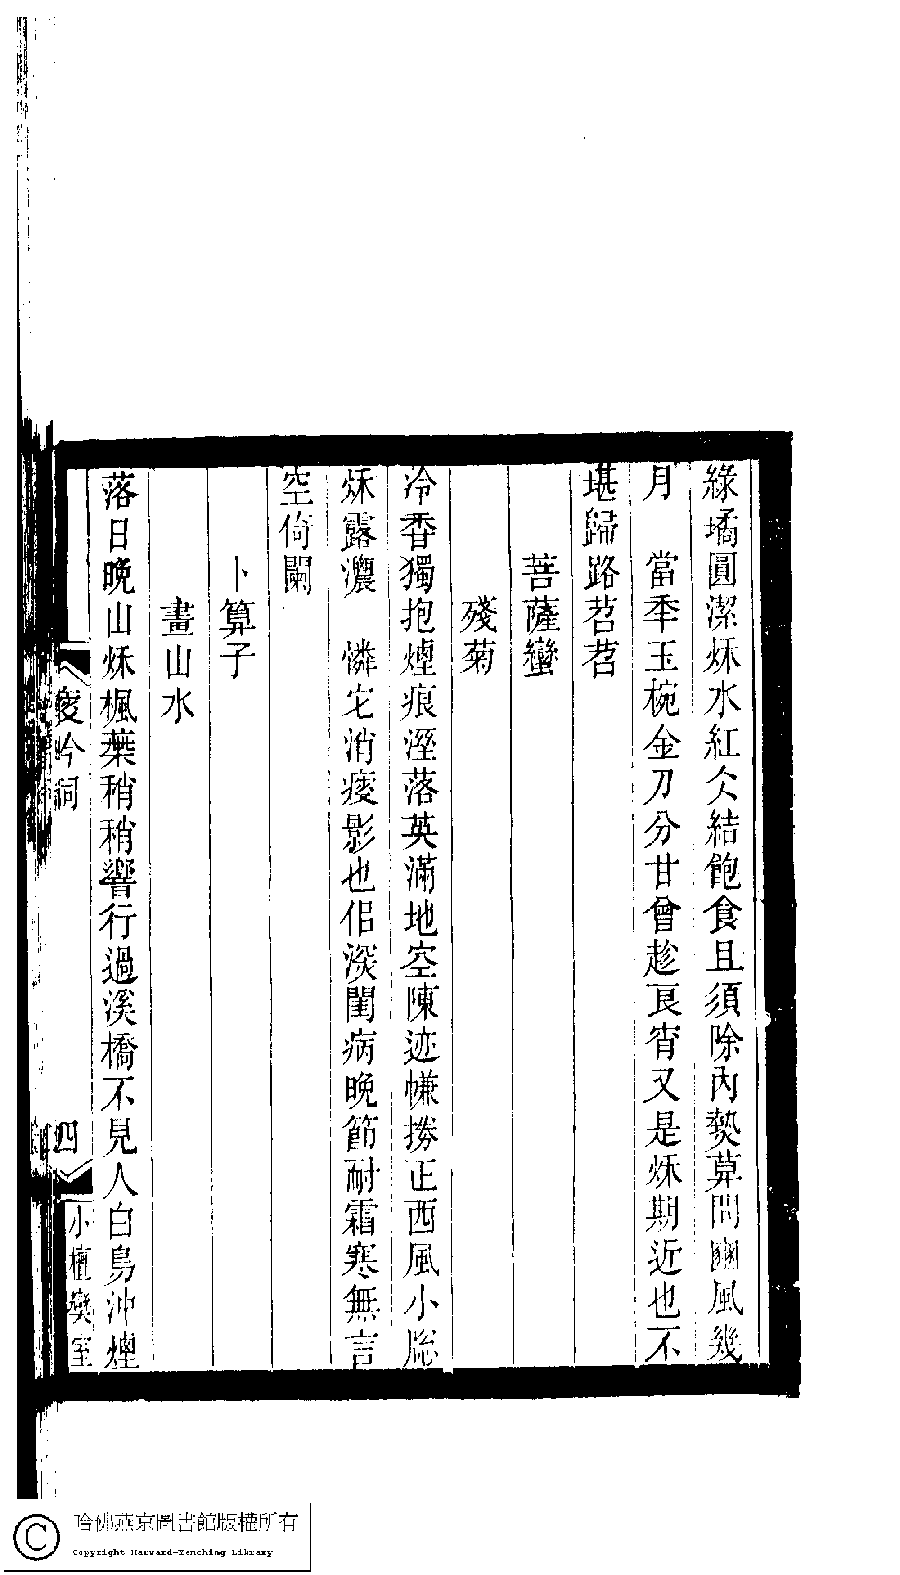 綠璚圓潔烁水紅仌結飽食且須除內𤍠莫問豳風幾
月　當秊玉椀金刀分甘曾趁良宵又是烁期近也不
堪歸路苕苕
菩薩蠻
殘菊
冷香獨抱煙痕溼落英滿地空陳迹㡘捲正西風小牕
烁露濃　憐它消瘦影也佀深閨病晚節耐霜寒無言
空倚闌
卜算子
畫山水
落日晚山烁楓葉稍稍響行過溪橋不見人白鳥沖煙
瘦吟詞
四
小檀欒室
哈佛燕京圖書館版權所有
Copyright Harvard-Yenching Library